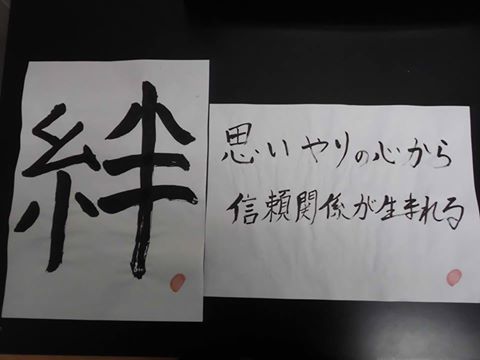 絆
思いやりの心から
信頼関係が生まれる